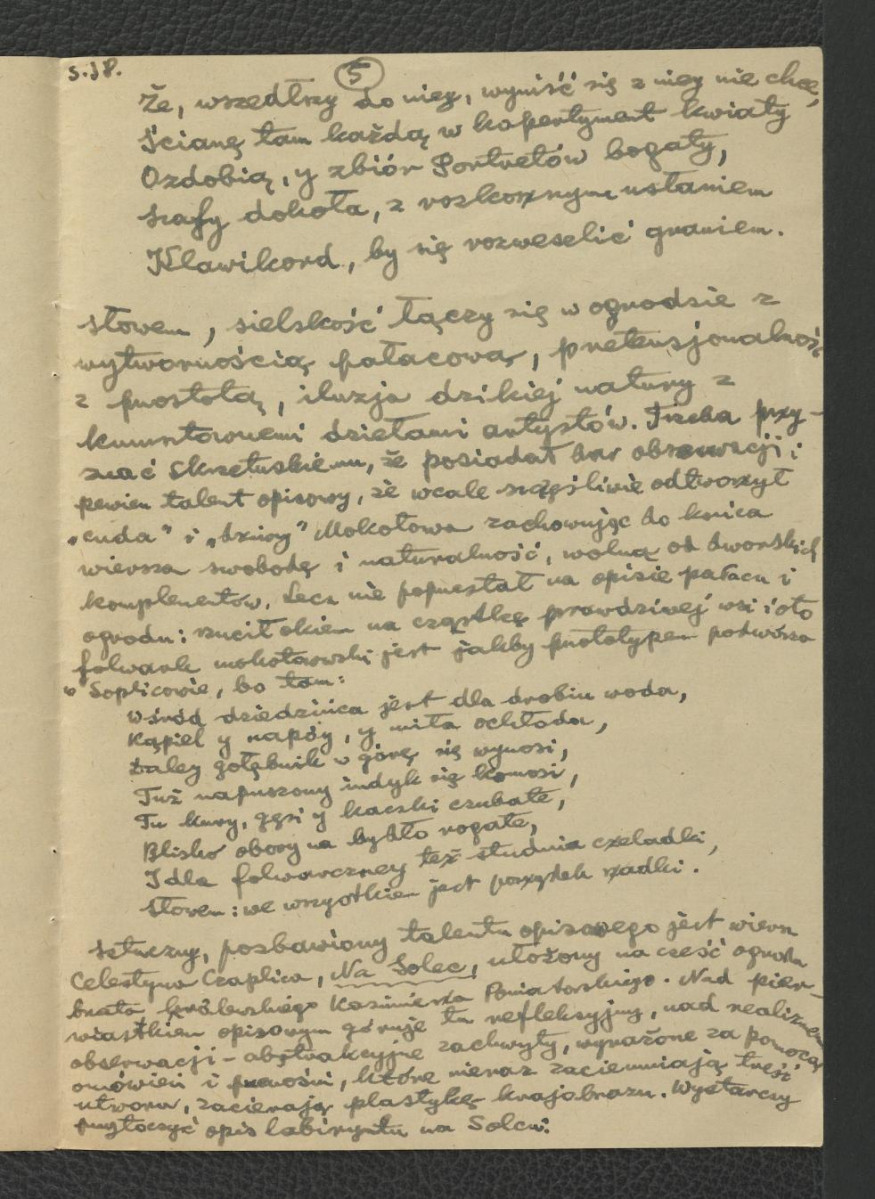 s.18.
5
Że, wszedłszy do niey, wyniść się z niey nie chce,
Ścianę tam każdą w kopertyment kwiaty
Ozdobią, y zbiór Portretów bogaty,
Szafy dokoła, z rozkosznym usłaniem
Klawikord, by się rozweselić graniem.
Słowem, sielskość łączy się w ogrodzie z
wytwornością pałacową, pretensjonalność
z prostotą, iluzja dzikiej natury z
kunsztownemi dziełami artystów. Trzeba przy-
znać Skrzetuskiemu, że posiadał dar obserwacji i
pewien talent opisowy, że wcale szczęśliwie odtworzył
„cuda” i „dziwy” Mokotowa zachowując do końca
wiersza swobodę i naturalność, wolną od dworskich
komplementów. Lecz nie poprzestał na opisie pałacu i
ogrodu: rzucił okiem na cząstkę prawdziwej wsi i oto
folwark mokotowski jest jakby prototypem podwórza
w Soplicowie, bo tam:
Wśród dziedzińca jest dla drobiu woda,
Kąpiel y napóy, y miła ochłoda,
Daley gołębnik w górę się wynosi,
Tuż napuszony indyk się komosi,
Tu kury, gęsi y kaczki czubate,
Blisko obory na bydło rogate,
I dla folwarczney też studnia czeladki,
Słowem: we wszystkiem jest porządek rzadki.
Sztuczny, pozbawiony talentu opisowego jest wiersz
Celestyna Czaplica, Na Solec, ułożony na cześć ogrodu
brata królewskiego Kazimierza Poniatowskiego. Nad pier-
wiastkiem opisowym góruje tu refleksyjny, nad realizmem
obserwacji – abstrakcyjne zachwyty, wyrażone za pomocą
omówień i przenośni, które nieraz zaciemniają treść
utworu, zacierają plastykę krajobrazu. Wystarczy
przytoczyć opis labiryntu na Solcu: